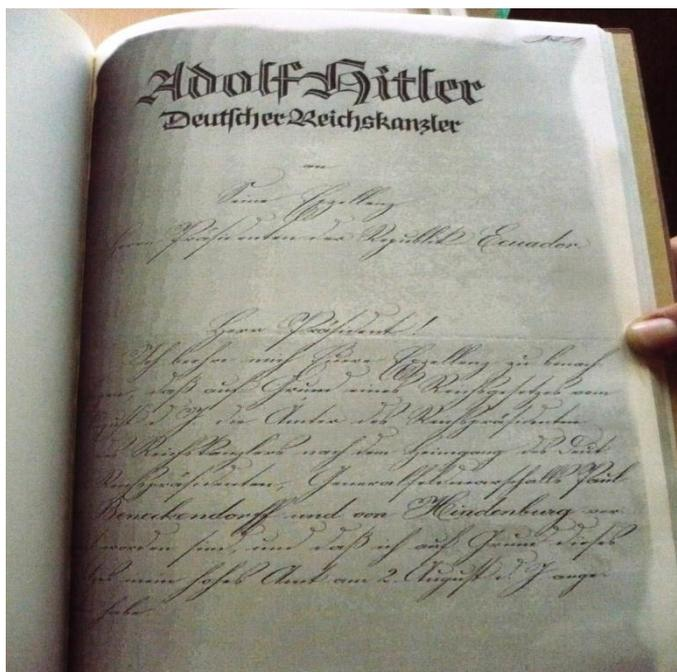 Adolf Hitler
Deutscher Reichskanzler
an
Seine Exzellenz
Herrn Präsidenten der Republik Ecuador
Herr Präsident!
Ich beehre mich Euere Exzellenz zu benach
en, daß auf Grund eines Reichsgesetzes vom
d. J. die Ämter des Reichspräsidenten
Reichskanzlers nach dem Heimgang des Deut
Reichspräsidenten, Generalfeldmarschalls Paul
Beneckendorff und von Hindenburg ver
worden sind, und daß ich auf Grund dieses
mein hohes Amt am 2. August d. J. ange
habe.